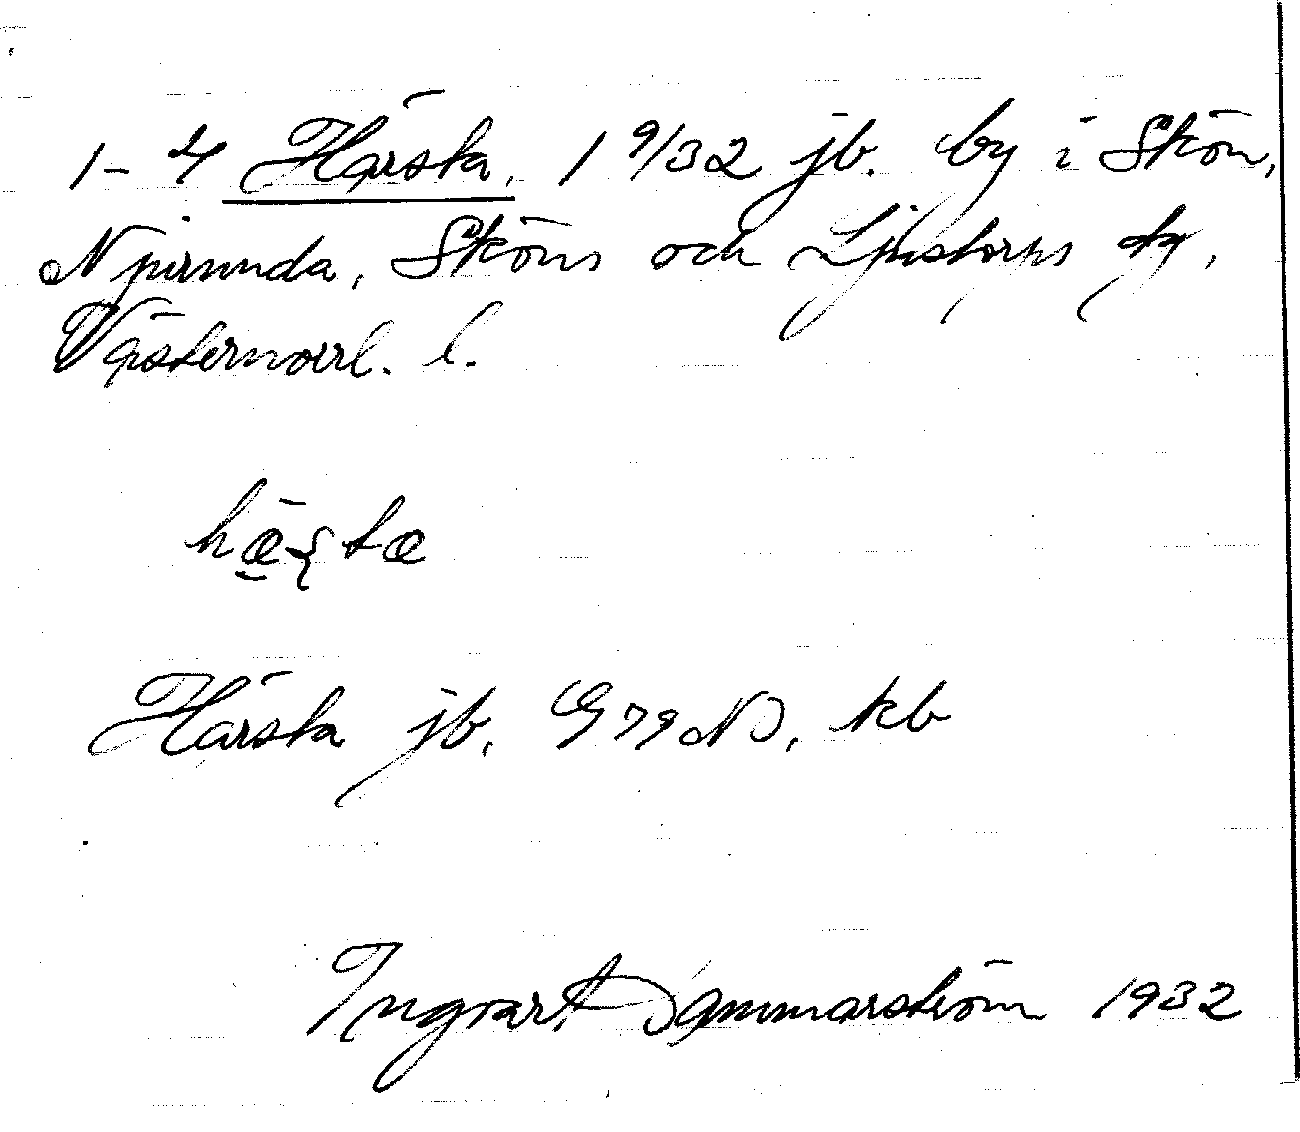 1-4 Härsta, 1 9/32 jb. by i Skön,
Njurunda, Sköns och Ljustorps tg,
Västernorrl. l.
Härsta jb, G 79 ND, kb
Ingvart Dammarström 1932